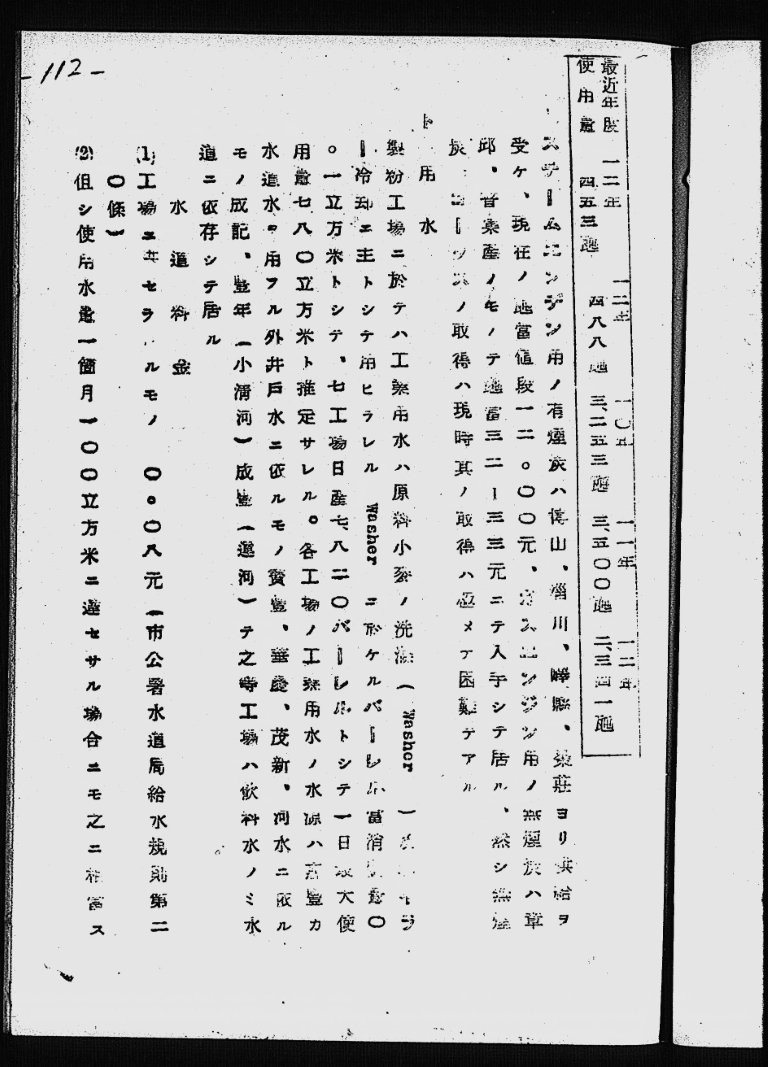 -112-
最近年度 一二年 一二年 一〇年 一一年 一二年
使用量 四五三瓲 四八八瓲 三、二五三瓲 三、五〇〇瓲 二、三四一瓲
スチームエンジン用ノ有煙炭ハ博山、淄川、嶧縣、棗莊ヨリ供給ヲ
受ケ、現在ノ瓲當値段一二。〇〇元、ガスエンジン用ノ無煙炭ハ章
邱、晋泉産ノモノテ瓲當三二ー三三元ニテ入手シテ居ル、然シ無煙
炭コークスノ取得ハ現時其ノ取得ハ極メテ困難テアル
ト 用水
製粉工場ニ於テハ工業用水ハ原料小麥ノ洗滌(Washer)
ー冷却ニ主トシテ用ヒラレル Washer ニ於ケルバーレル當消費量〇
。一立方米トシテ、七工場日産七、八二〇バーレルトシテ一日最大使
用量七八〇立方米ト推定サレル。各工場ノ工業用水ノ水源ハ豊カ
水道水ヲ用フル外井戸水ニ依ルモノ寳豊、華慶、茂新、河水ニ依ル
モノ成記、豊年(小清河)成豊(運河)テ之等工場ハ飲料水ノミ水
道ニ依存シテ居ル
水道料金
(1)工場ニ供セラルルモノ 〇。〇八元(市公署水道局給水規則第二
〇條)
(2)但シ使用水量一箇月一〇〇立方米ニ達セサル場合ニモ之ニ相當ス